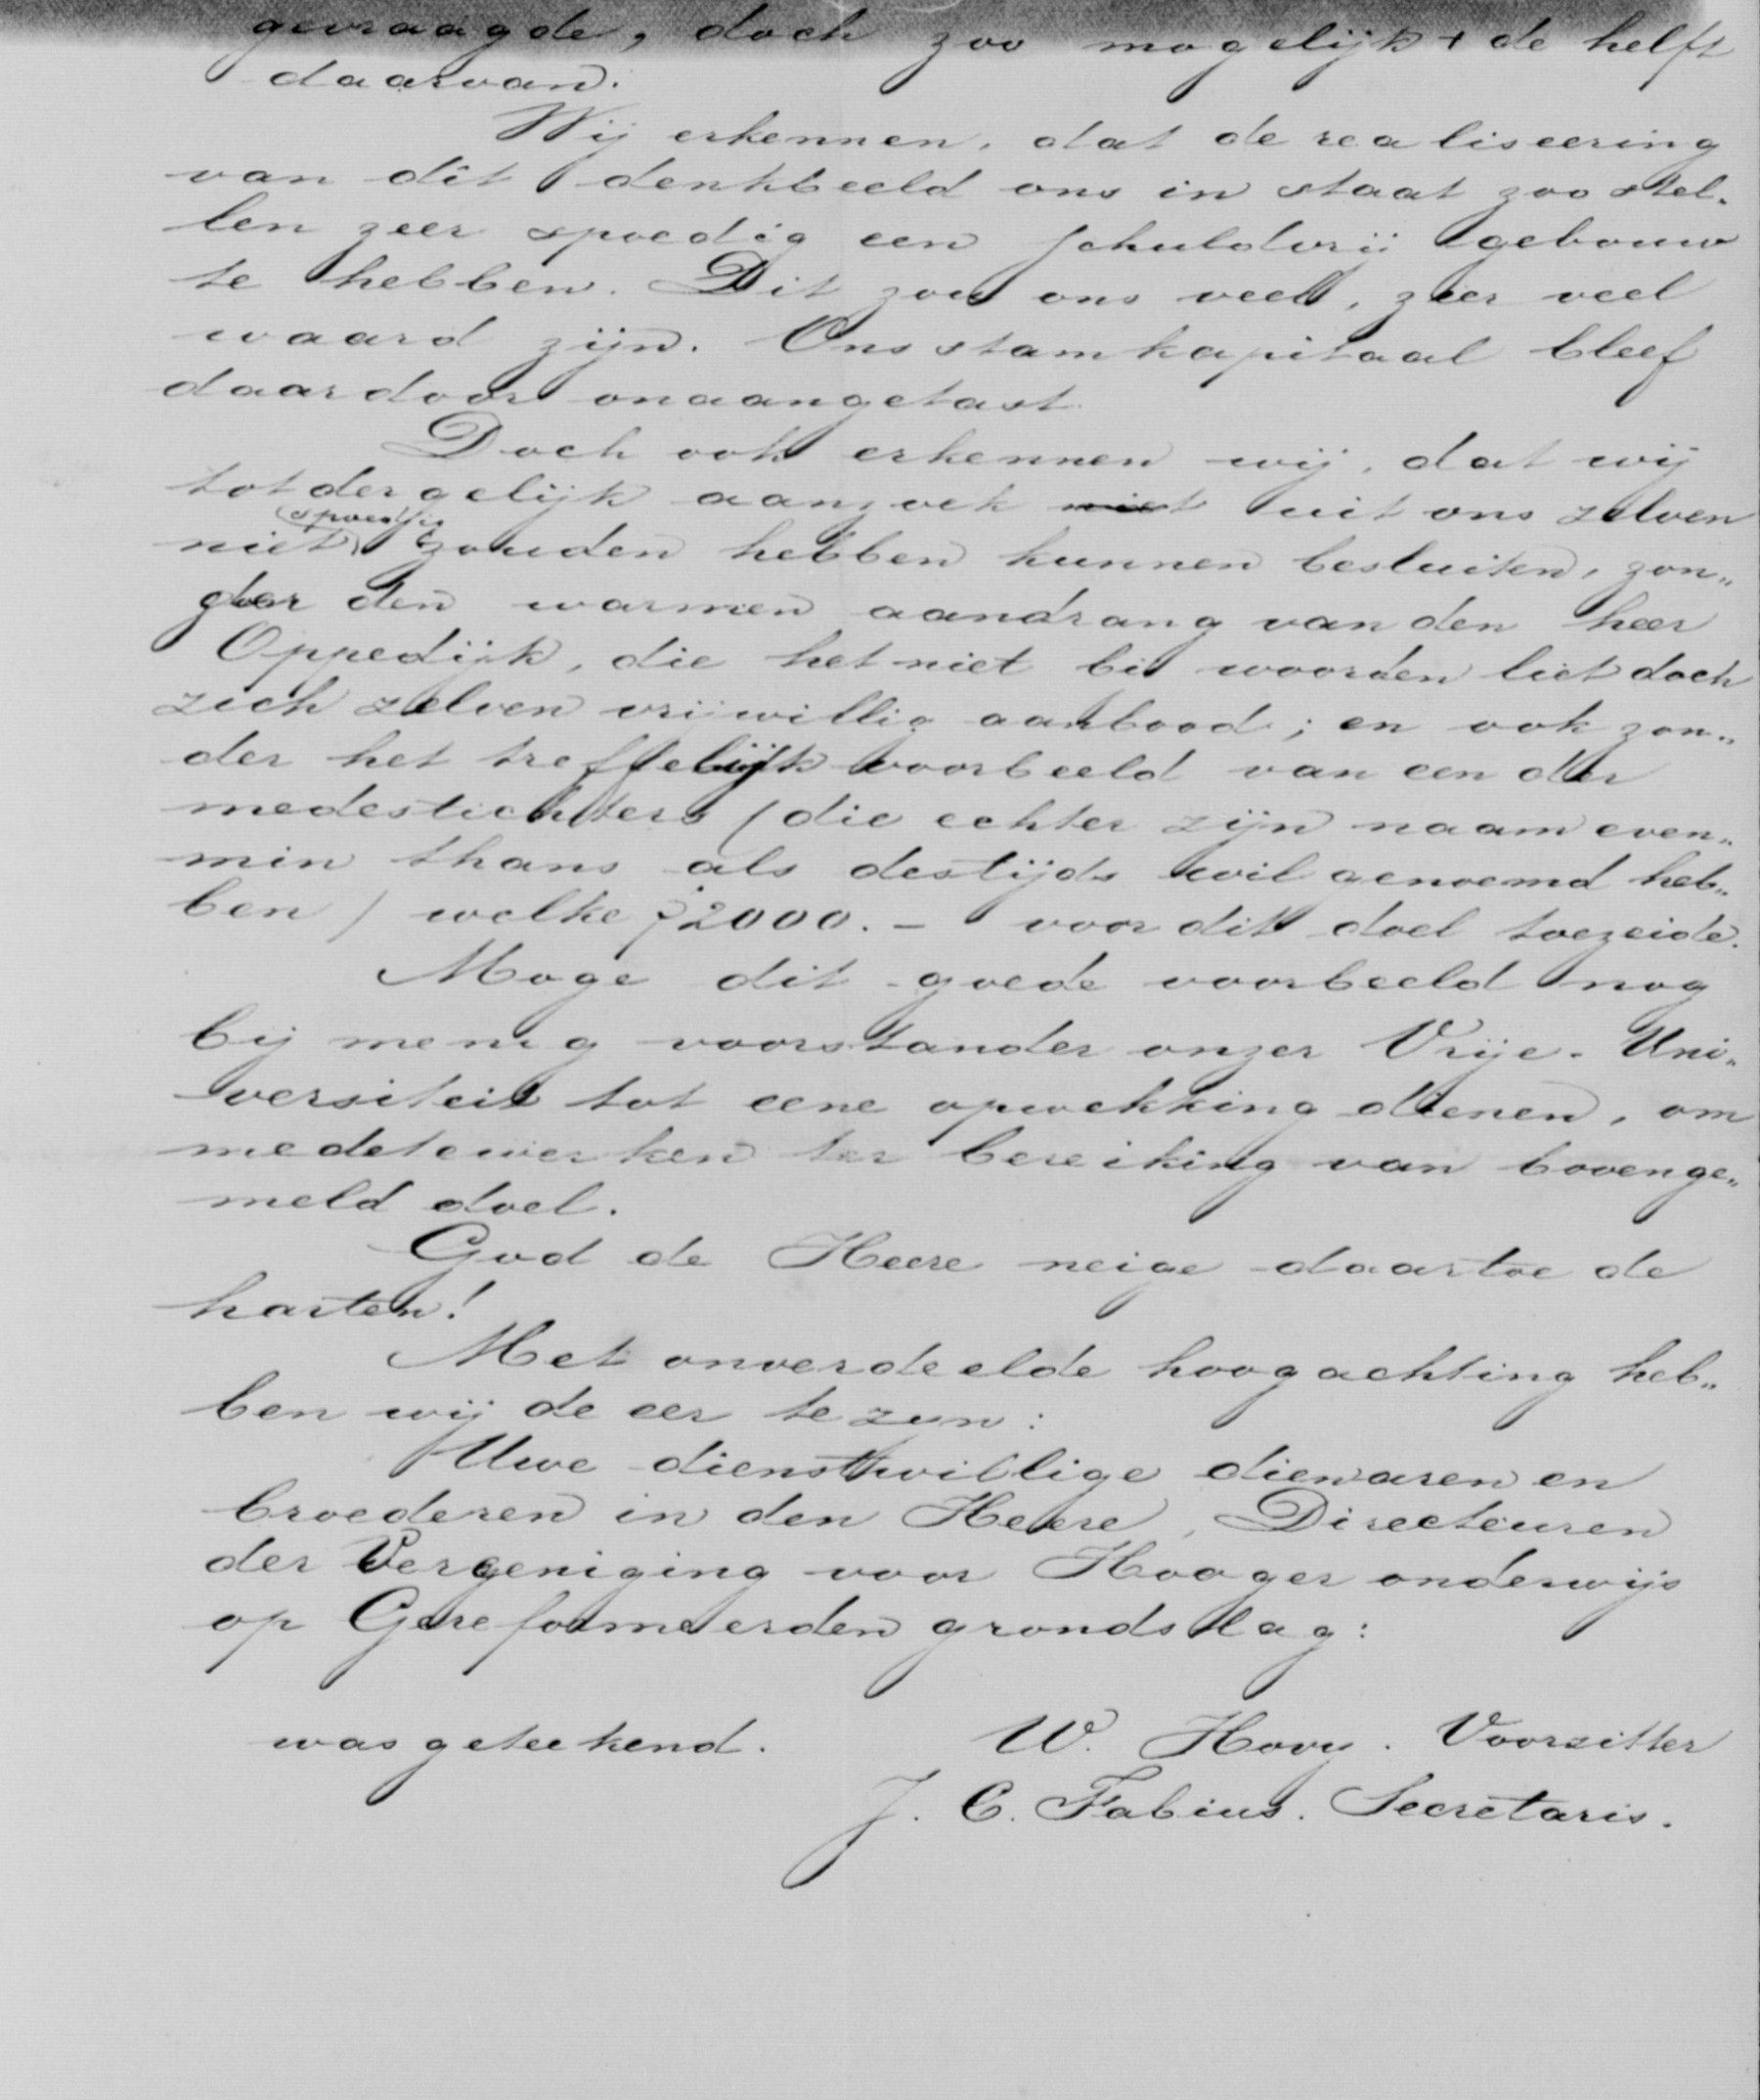 gevraagde, doch zoo mogelijk + de helft
daarvan.
Wij erkennen, dat de realiseering
van dit denkbeeld ons in staat zoo stel-
len zeer spoedig een schuldvrij gebouw
te hebben. Dit zou ons veel, zeer veel
waard zijn. Ons stamkapitaal bleef
daardoor onaangetast.
Doch ook erkennen wij, dat wij
tot dergelijk aanzoek niet uit ons zelven
niet spoedig zouden hebben kunnen besluiten, zon„
der den warmen aandrang van den heer
Oppedijk, die het niet bij woorden liet doch
zich zelven vrijwillig aanbood; en ook zon„
der het treffelijk voorbeeld van een der
medestichters (die echter zijn naam even„
min thans als destijds wil genoemd heb„
ben) welke ƒ2000.- voor dit doel toezeide.
Moge dit goede voorbeeld nog
bij menig voorstander onzer Vrije-Uni„
versiteit tot eene opwekking dienen, om
medetewerken ter bereiking van bovenge„
meld doel.
God de Heere neige daartoe de
harten!
Met onverdeelde hoogachting heb„
ben wij de eer te zijn:
Uwe dienstwillige dienaren en
broederen in den Heere, Directeuren
der Vereeniging voor Hooger onderwijs
op Gereformeerden grondslag:
was geteekend. W. Hovy. Voorzitter
J. C. Fabius. Secretaris.